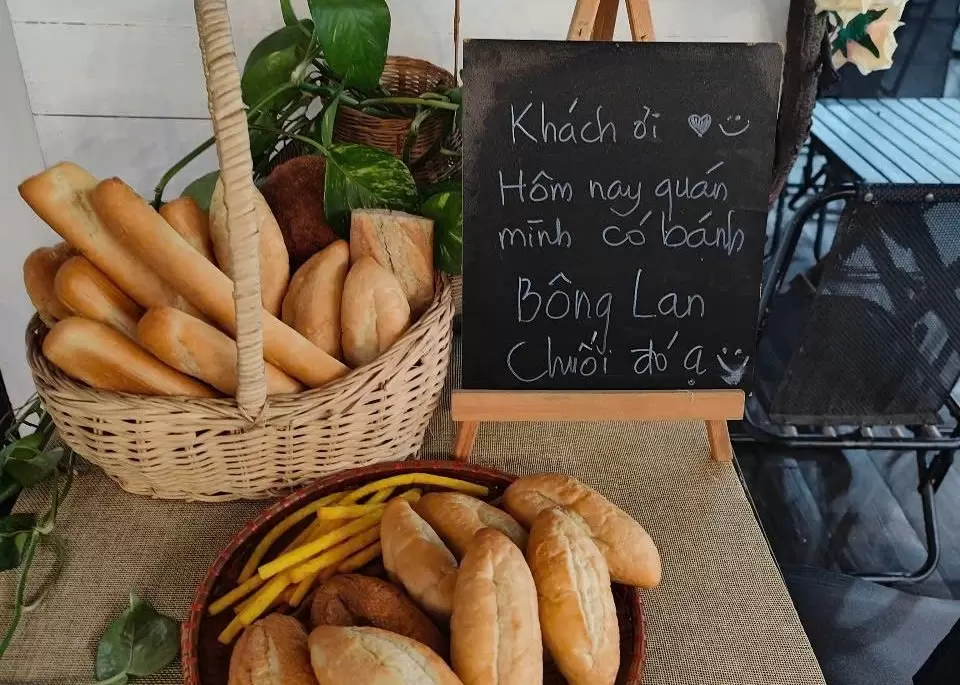 Khách ơi
Hôm nay quán
mình có bánh
Bông Lan
Chuối đó ạ